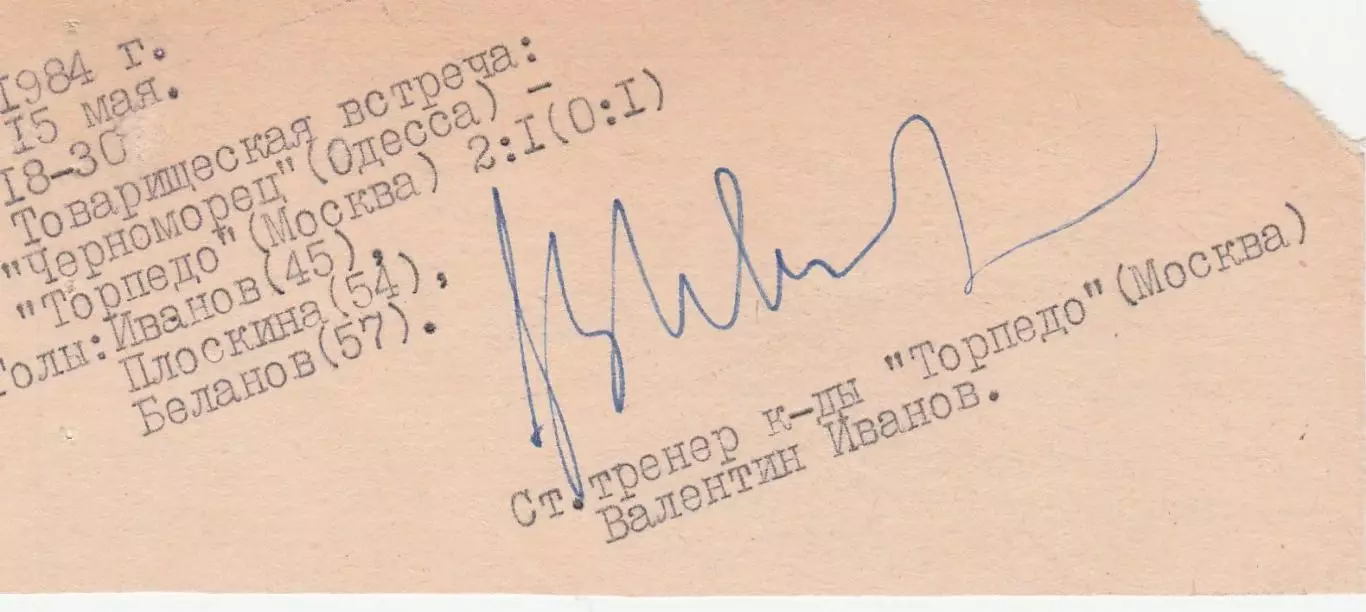 1984 г.
15 мая.
18-30
Товарищеская встреча:
"Черноморец"(Одесса) -
"Торпедо"(Москва) 2:1(0:1)
Голы:Иванов(45),
Плоскина(54),
Беланов(57).
Ст.тренер к-ды "Торпедо"(Москва)
Валентин Иванов.